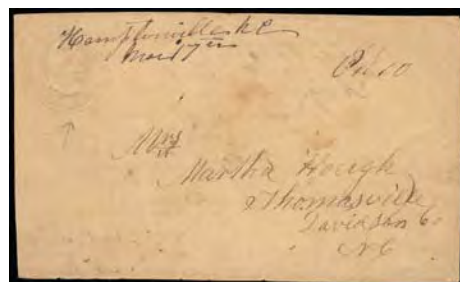 Hamptonville N C
Paid 10
Mrs
Martha Hough
Thomasville
Davidson Co
N C